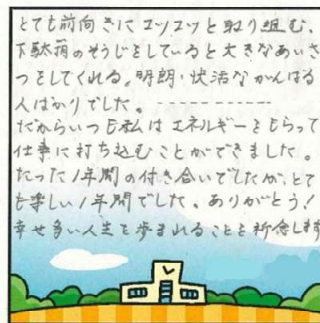 とても前向きにコツコツと取り組む、
下駄箱のそうじをしていると大きなあいさ
つをしてくれる。明朗・快活ながんばる
人ばかりでした。
だからいつも私はエネルギーをもらって
仕事に打ち込むことができました。
たった1年間の付き合いでしたが、とて
も楽しい1年間でした。ありがとう！
幸せ多い人生を歩まれることを祈念します